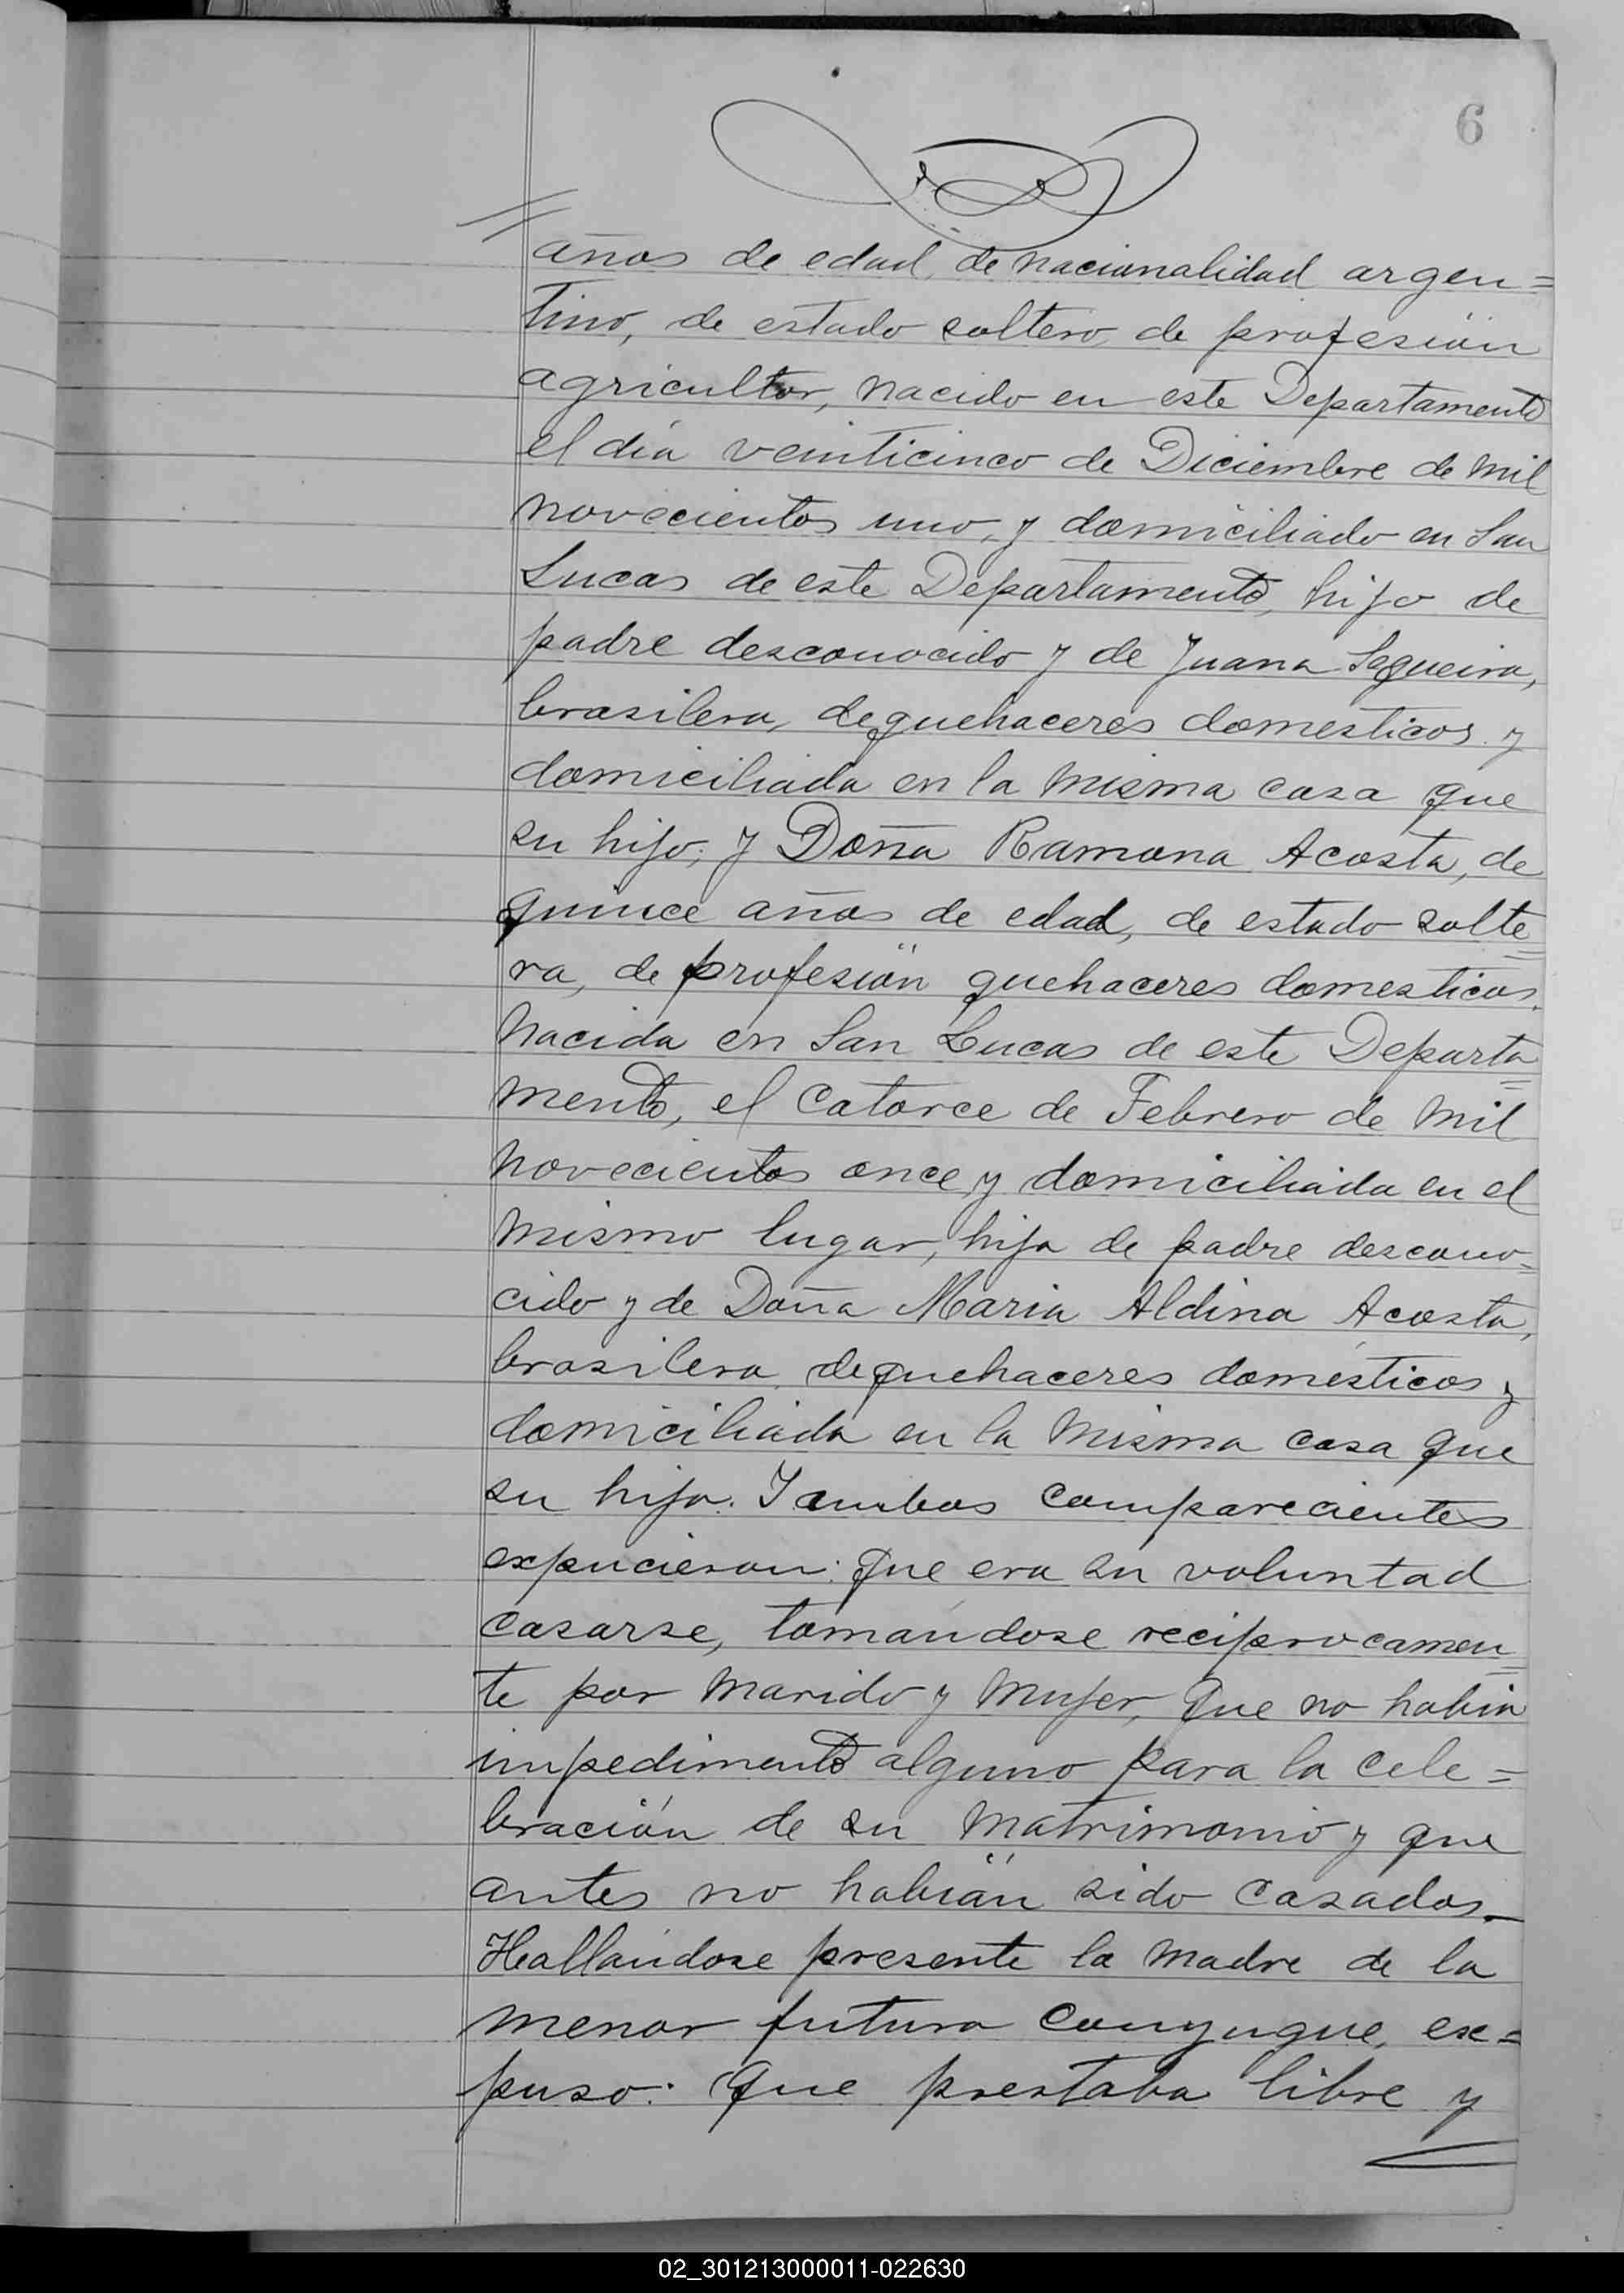 6
años de edad, de nacionalidad argen=
tino, de estado soltero, de profesión
agricultor, nacido en este Departamento
el día veinticinco de Diciembre de mil
novecientos uno, y domiciliado en San
Lucas de este Departamento, hijo de
padre desconocido y de Juana Sequeira,
brasilera, de quehaceres domesticos y
domiciliada en la misma casa que
su hijo; y Doña Ramona Acosta, de
quince años de edad, de estado solte=
ra, de profesión quehaceres domesticos.
nacida en San Lucas de este Departa=
mento, el catorce de Febrero de mil
novecientos once y domiciliada en el
mismo lugar, hija de padre descono=
cido y de Doña Maria Aldina Acosta,
brasilera, de quehaceres domésticos y
domiciliada en la misma casa que
su hija. Y ambos comparecientes
expucieron: que era su voluntad
casarse, tomandose reciprocamen=
te por marido y mujer, que no habia
impedimento alguno para la cele=
bración de su matrimonio y que
antes no habían sido casados.
Hallándose presente la madre de la
menor futura conyugue, ex=
puso: que prestaba libre y
02_301213000011-022630